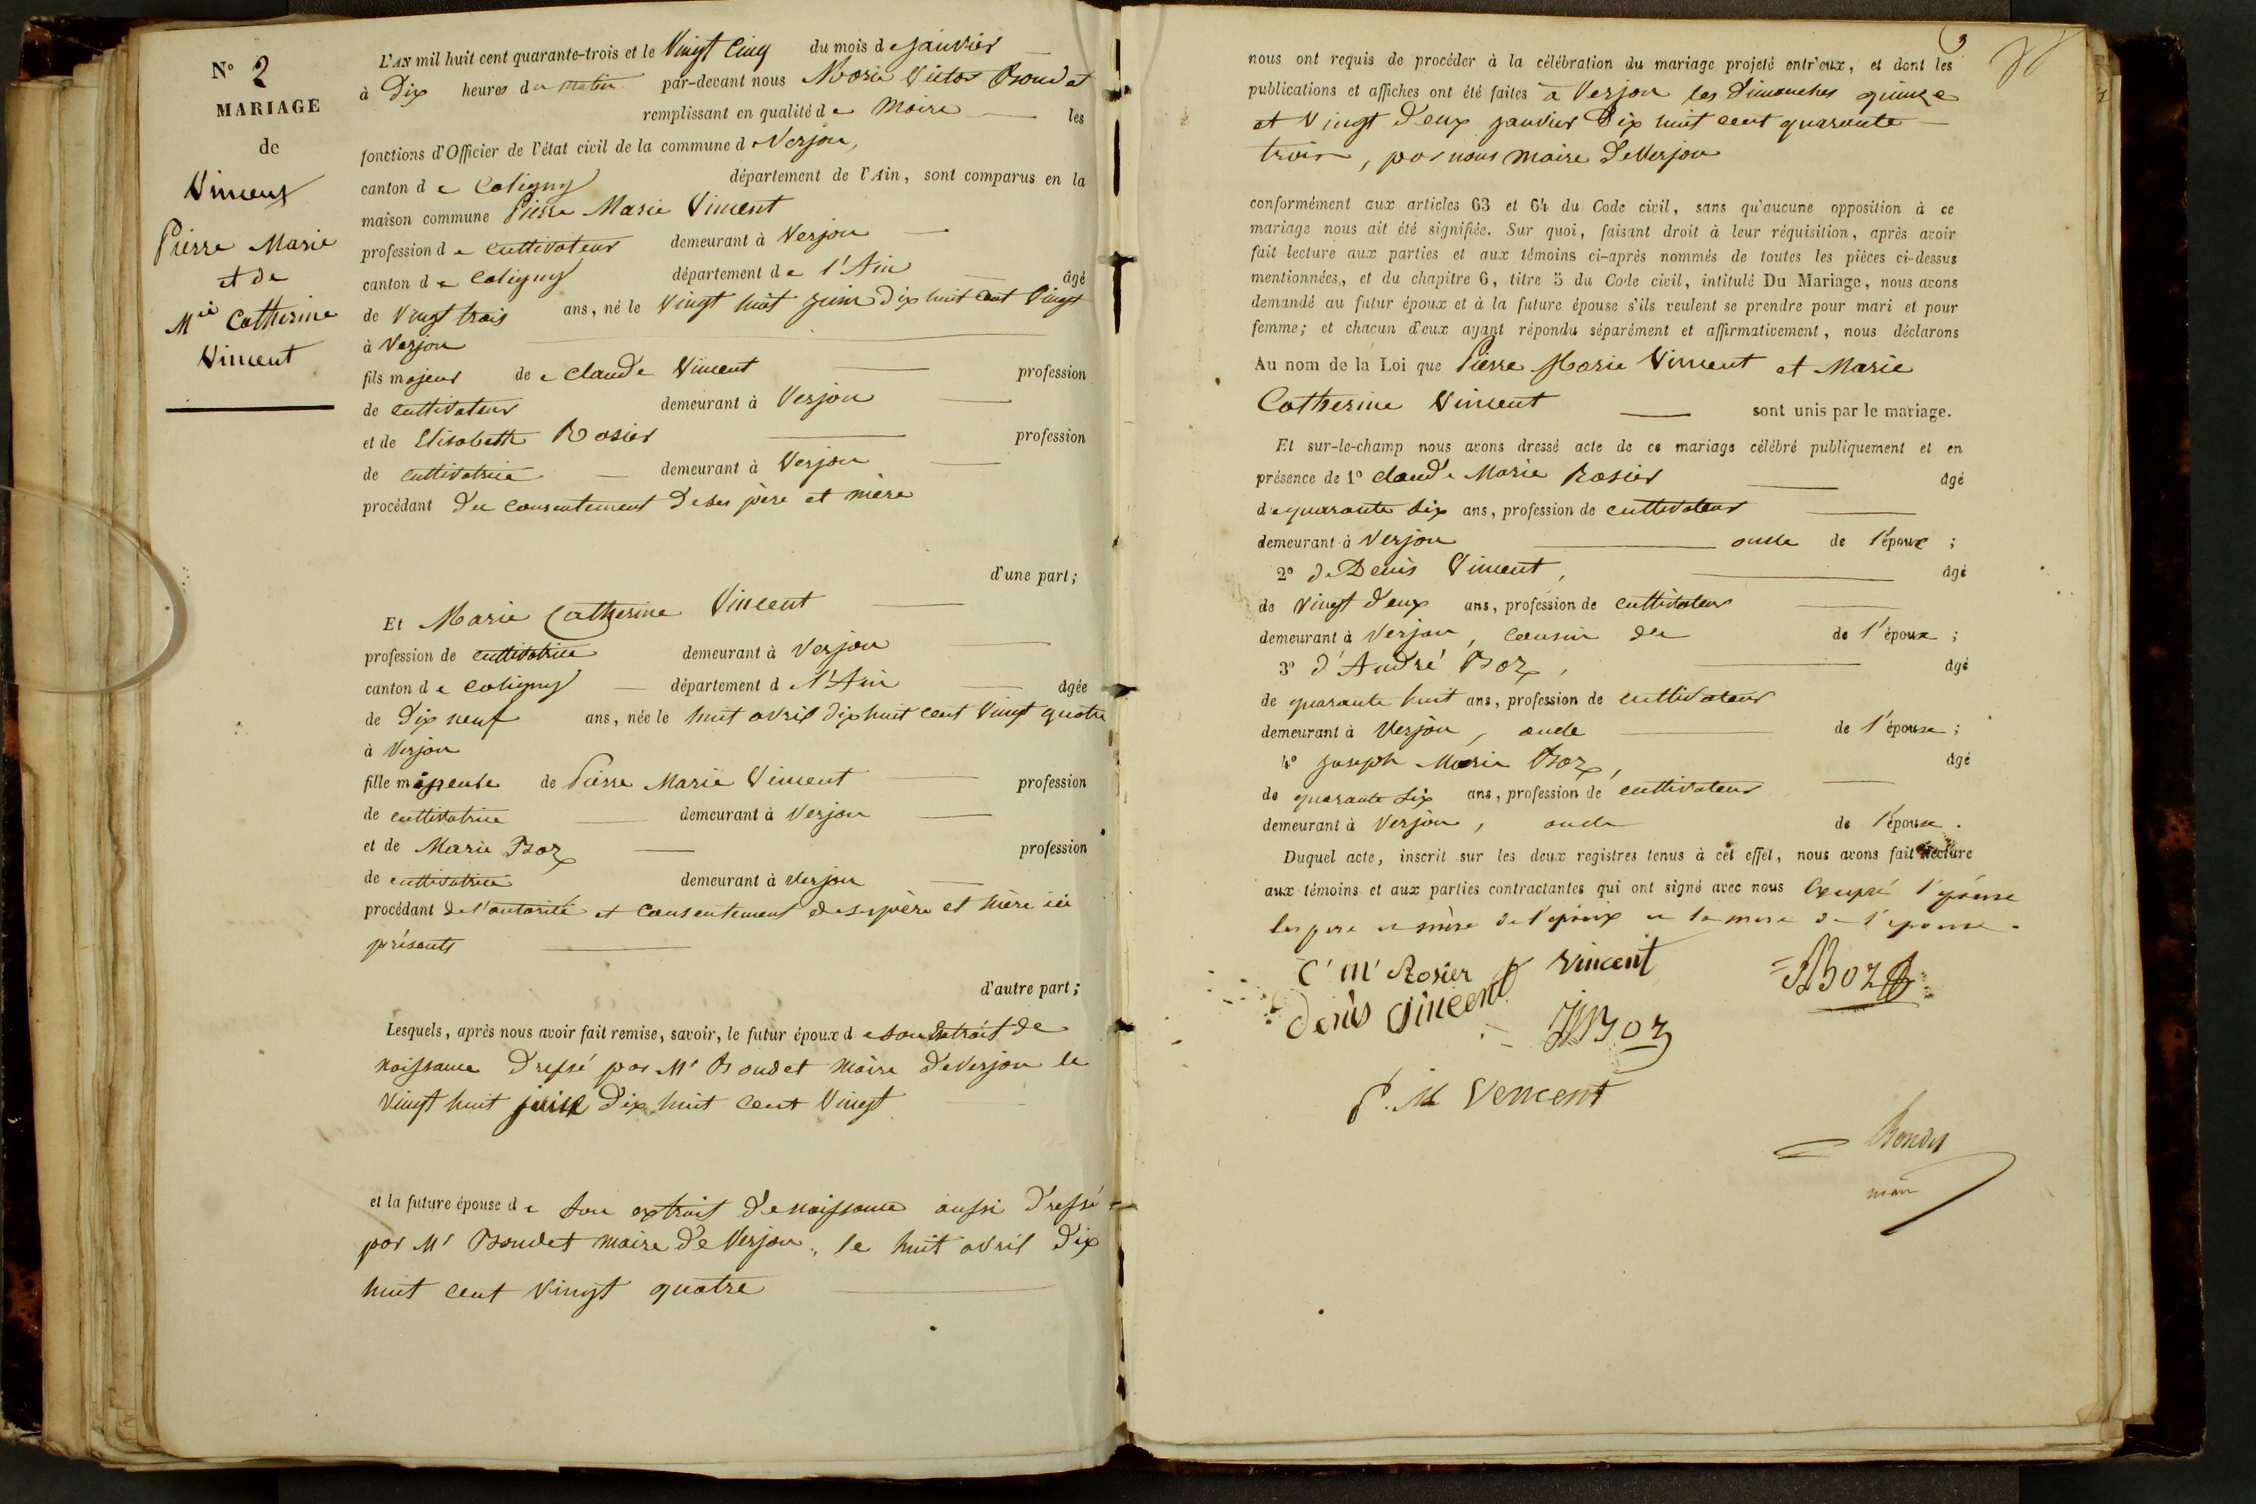 N° 2
MARIAGE
de
Vincent
Pierre Marie
et de
Mie Catherine
Vincent
L'AN mil huit cent quarante-trois et le Vingt Cinq du mois de janvier
à Dix heures du matin par-devant nous Marie Victor Boudet
remplissant en qualité de Maire les
fonctions d'Officier de l'état civil de la commune d Verjon,
canton de Coligny département de l'Ain, sont comparus en la
maison commune Pierre Marie Vincent
profession de cultivateur demeurant à Verjon
canton de Coligny département de l'Ain âgé
de Vingt trois ans, né le Vingt huit juin dix huit cent Vingt
à Verjon
fils majeur de Claude Vincent profession
de cultivateur demeurant à Verjon
et de Elisabeth Rosier profession
de cultivatrice demeurant à Verjon
procédant du consentement de ses père et mère
d'une part;
Et Marie Catherine Vincent
profession de cultivatrice demeurant à Verjon
canton de Coligny département d l'Ain âgée
de Dix neuf ans, née le huit avril dix huit cent Vingt quatre
à Verjon
fille mineure de Pierre Marie Vincent profession
de cultivatrice demeurant à Verjon
et de Marie Boz profession
de cultivatrice demeurant à Verjon
procédant de l'autorité et consentement de ses père et mère ici
présents
d'autre part;
Lesquels, après nous avoir fait remise, savoir, le futur époux de son Extrait de
naissance dressé par Mr Boudet Maire de Verjon le
Vingt huit juin Dix huit Cent Vingt
et la future épouse de son extrait de naissance aussi dressé
par Mr Boudet maire de Verjon, le huit avril dix
huit cent vingt quatre
3
nous ont requis de procéder à la célébration du mariage projeté entr'eux, et dont les
publications et affiches ont été faites à Verjon les Dimanches quinze
et Vingt Deux janvier Dix huit cent quarante
trois, par nous maire de Verjon
conformément aux articles 63 et 64 du Code civil, sans qu'aucune opposition à ce
mariage nous ait été signifiée. Sur quoi, faisant droit à leur réquisition, après avoir
fait lecture aux parties et aux témoins ci-après nommés de toutes les pièces ci-dessus
mentionnées, et du chapitre 6, titre 5 du Code civil, intitulé Du Mariage, nous avons
demandé au futur époux et à la future épouse s'ils veulent se prendre pour mari et pour
femme; et chacun d'eux ayant répondu séparément et affirmativement, nous déclarons
Au nom de la Loi que Pierre Marie Vincent et Marie
Catherine Vincent sont unis par le mariage.
Et sur-le-champ nous avons dressé acte de ce mariage célébré publiquement et en
présence de 1° Claude Marie Rosier âgé
de quarante six ans, profession de cultivateur
demeurant à Verjon oncle de l'époux;
2° de Denis Vincent, âgé
de vingt deux ans, profession de cultivateur
demeurant à Verjon, cousin de l'époux;
3° d'André Boz, âgé
de quarante huit ans, profession de cultivateur
demeurant à Verjon, oncle de l'épouse;
4° Joseph Marie Boz, âgé
de quarante six ans, profession de cultivateur
demeurant à Verjon, oncle de l'épouse.
Duquel acte, inscrit sur les deux registres tenus à cet effet, nous avons fait lecture
aux témoins et aux parties contractantes qui ont signé avec nous Excepté l'épouse
les père et mère de l'époux et la mere de l'épouse.
C' M' Rosier p Vincent ABoz
Denis Vincent JMBoz
P. M Vencent
Boudet
maire